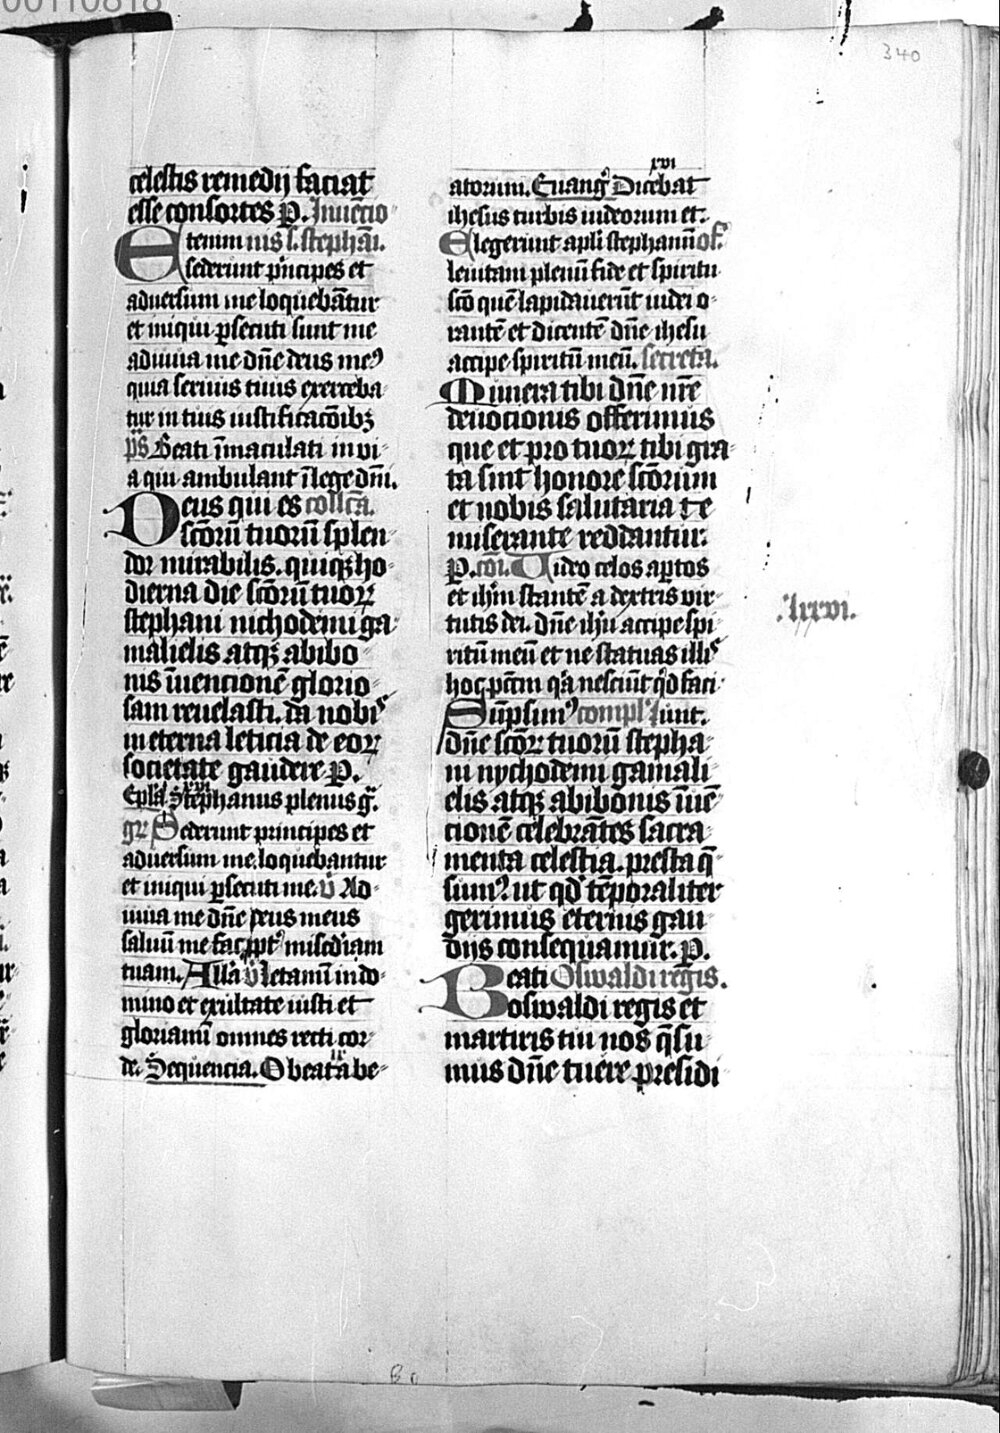 00110818
340
celestis remedij faciat
esse consortes P. Inuēcio
Etenim nis s. stephāi.
sederunt pͥncipes et
aduersum me loquebātur
et iniqui ꝑsecuti sunt me
adiuua me dn̄e deus meꝰ
quia seruus tuus exerceba
tur in tuis iustificacōibꝫ
p̄s Beati īmaculati in vi
a qui ambulant ī lege dn̄i.
Deus qui es coll̄ca.
sc̄orū tuorū splen
dor mirabilis. quiqꝫ ho
dierna die sc̄orū tuoꝝ
stephani nichodemi ga
malielis atqꝫ abibo
nis īuencionē glorio
sam reuelasti. da nobis
in eterna leticia de eoꝝ
societate gaudere P.
xxvi
Epl̄a Stephanus plenus gͣ.
gr̄ Sederunt principes et
aduersum me loquebantur
et iniqui ꝑsecuti me. v̄ Ad
iuua me dn̄e deus meus
saluū me fac ꝓptꝰ misc̄diam
tuam. All̄a v̄ Letamī in do
mino et exultate iusti et
gloriamī omnes recti cor
ix
de. Sequencia. O beata be
xvi
atorum. Euang̓ Dicebat
ihesus turbis iudeorum et.
Elegerunt apl̄i stephanū of̄.
leuitam plenū fide et spiritu
sc̄o quē lapidauerūt iudei o
rantē et dicentē dn̄e ihesu
accipe spiritū meū. secreta.
Munera tibi dn̄e nr̄e
deuocionis offerimus
que et pro tuoꝝ tibi gra
ta sint honore sc̄orum
et nobis salutaria te
miserante reddantur.
P. cōi. Uideo celos aꝑtos
et ih̄m stantē a dextris vir
tutis dei. dn̄e ih̄u accipe spi
ritū meū et ne statuas illis
hoc pc̄tm qͥa nesciūt qͥd faci
Sūpsimꝰ compl̄ Iunt.
dn̄e sc̄oꝝ tuorū stepha
ni nychodemi gamali
elis atqꝫ abibonis īuē
cionē celebrātes sacra
menta celestia. presta q̄
sumꝰ ut qd̓ tēporaliter
gerimus eternis gau
dijs consequamur. P.
Beati Oswaldi regis.
oswaldi regis et
martiris tui nos q̄su
mus dn̄e tuere presidi
.lxxvi.